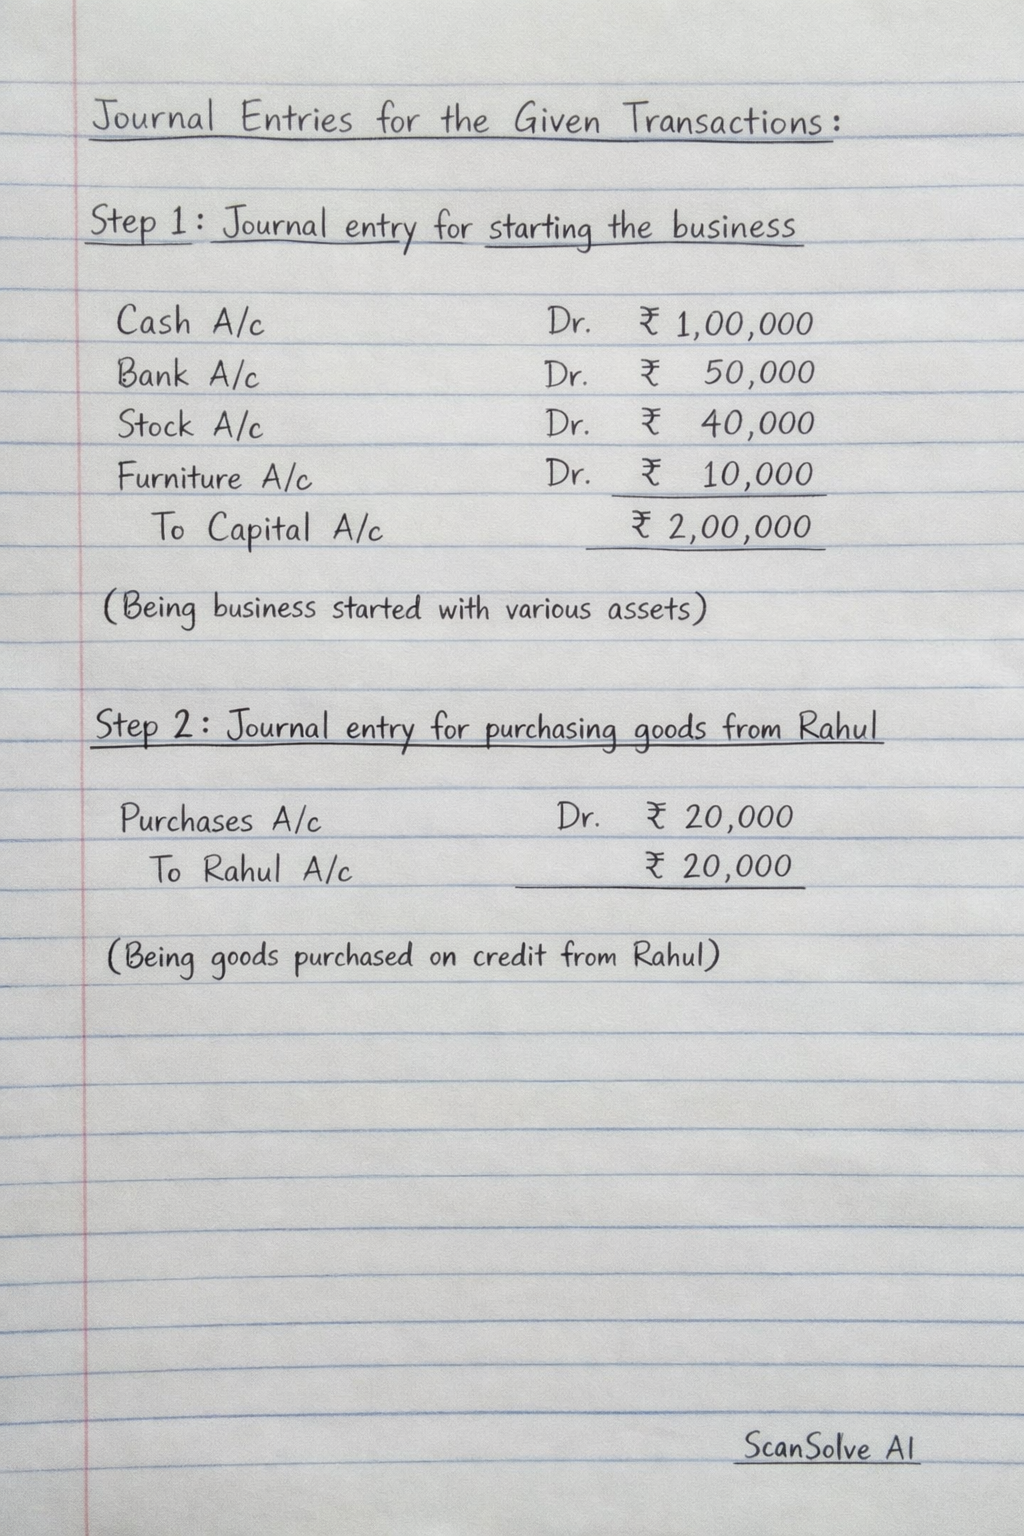 Journal Entries for the Given Transactions:
Step 1: Journal entry for starting the business
Cash A/c Dr. ₹ 1,00,000
Bank A/c Dr. ₹ 50,000
Stock A/c Dr. ₹ 40,000
Furniture A/c Dr. ₹ 10,000
To Capital A/c ₹ 2,00,000
(Being business started with various assets)
Step 2: Journal entry for purchasing goods from Rahul
Purchases A/c Dr. ₹ 20,000
To Rahul A/c ₹ 20,000
(Being goods purchased on credit from Rahul)
ScanSolve AI